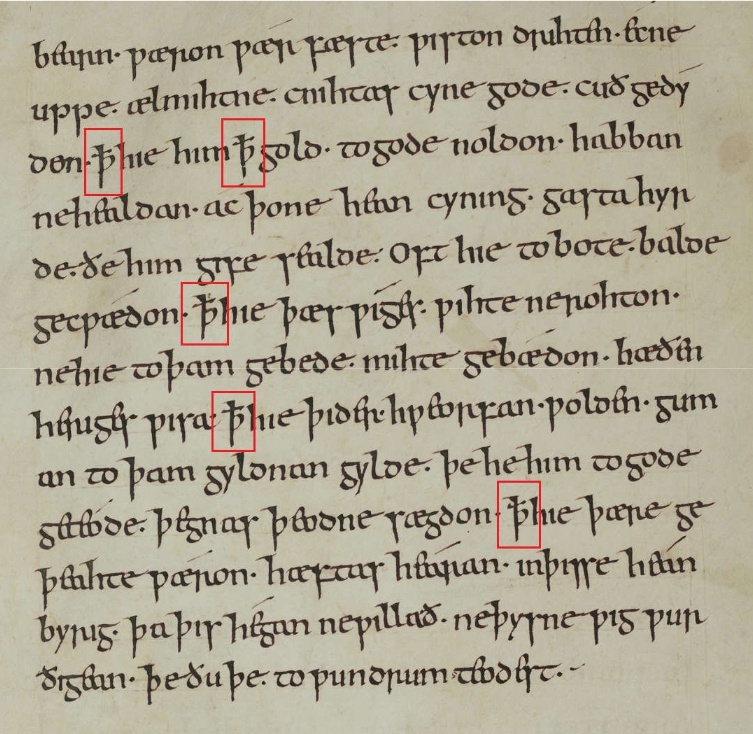 bearn· ƿæron ƿær fæste· ƿiston drihten· ecne
uppe· ælmihtne· cnihtas cyne gode· cuð gedy
don· ꝥ hie him ꝥ gold· to gode noldon· habban
ne healdan· ac þone hean cyning· gasta hyr
de· ðe him gife sealde· Oft hie to bote· balde
gecƿædon· ꝥ hie þæs ƿiges· ƿihte ne rohton·
ne hie to þam gebede· mihte gebædon· hæðen
heriges ƿisa· ꝥ hie þider· hƿeorfan· ƿolden· gum
an to þam gyldnan gylde· þe he him to gode
geteode· þegnas þeodne sægdon· ꝥ hie þære ge
þeahte ƿæron· hæftas hearan· in þisse hean
byrig· þa þis hegan ne ƿillað· ne þysne ƿig ƿur
ðigean· þe ðu þe· to ƿundrum teodest·